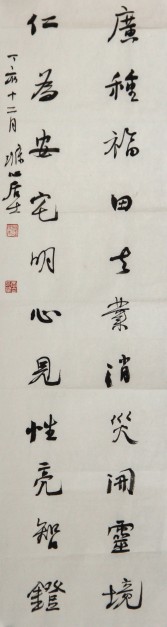 廣種福田去業消災開靈境
仁為安宅明心見性亮智鐙
丁亥十二月 居士